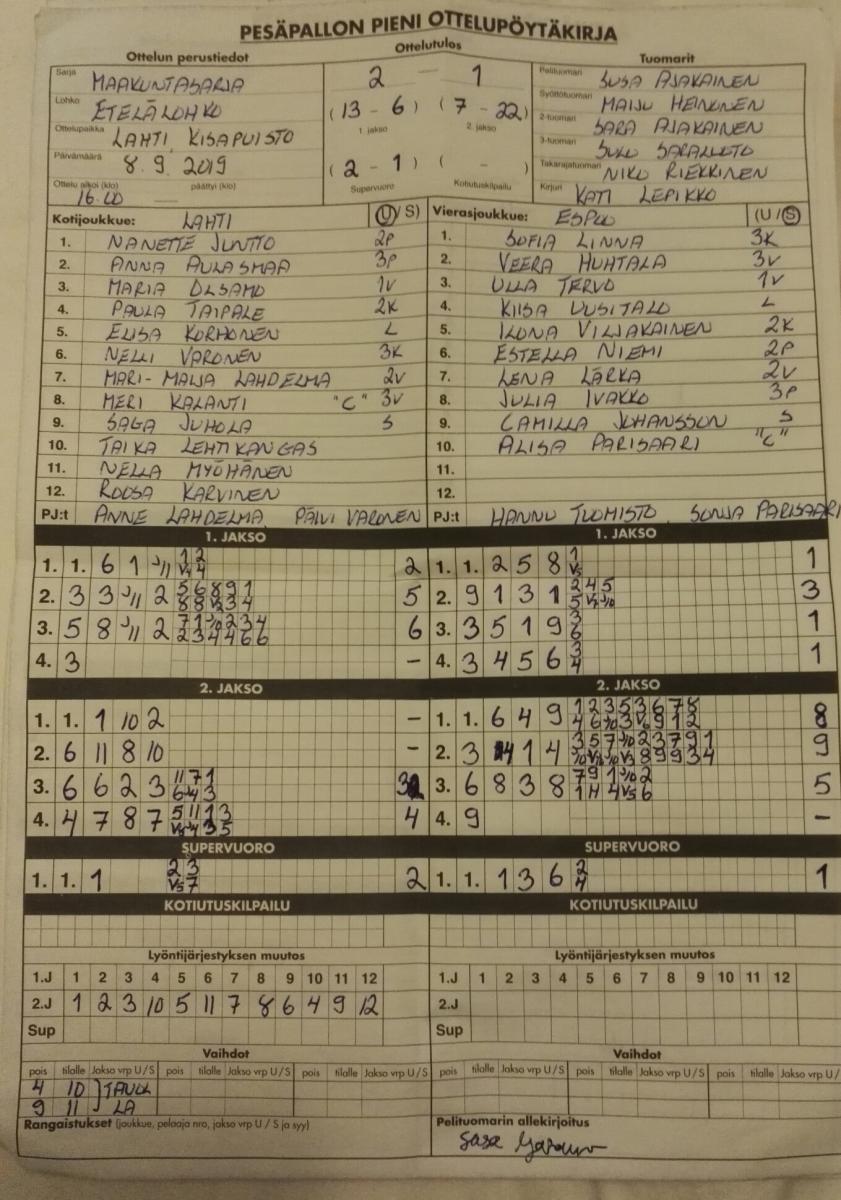 PESÄPALLON PIENI OTTELUPÖYTÄKIRJA
Ottelun perustiedot Ottelutulos Tuomarit
Sarja MAAKUNTASARJA 2 – 1 Pelituomari SUSA AJAKAINEN
Lohko ETELÄLOHKO (13 - 6) (7 - 22) Syöttötuomari MAIJU HEINONEN
Ottelupaikka LAHTI KISAPUISTO 1. jakso 2. jakso 2-tuomari SARA AJAKAINEN
Päivämäärä 8.9.2019 (2 - 1) ( - ) 3-tuomari
Ottelu alkoi (klo) 16.00 päättyi (klo) Supervuoro Kotiutuskilpailu Takarajatuomari NIKO RIEKKINEN
Kirjuri KATI LEPIKKO
Kotijoukkue: LAHTI (U/S) Vierasjoukkue: ESPOO (U/S)
1. NANETTE JUNTTO 2P 1. SOFIA LINNA 3K
2. ANNA AULASMAA 3P 2. VEERA HUHTALA 3V
3. MARIA OLSAMO 1V 3. ULLA TERVO 1V
4. PAULA TAIPALE 2K 4. KIISA UUSITALO L
5. ELISA KORHONEN L 5. ILONA VILJAKAINEN 2K
6. NELLI VARONEN 3K 6. ESTELLA NIEMI 2P
7. MARI-MAIJA LAHDELMA 2V 7. LENA LÄRKA 2V
8. MERI KALANTI "C" 3V 8. JULIA IVAKKO 3P
9. SAGA JUHOLA S 9. CAMILLA JOHANSSON S
10. TAIKA LEHTIKANGAS 10. ALISA PARISAARI "C"
11. NELLA MYÖHÄNEN 11.
12. ROOSA KARVINEN 12.
PJ:t ANNE LAHDELMA PÄIVI VARONEN PJ:t HANNU TUOMISTO SONJA PARISAARI
1. JAKSO 1. JAKSO
1. 1. 6 1 2 1. 1. 2 5 8 1
2. 3 3 2 5 2. 9 1 3 1 3
3. 5 8 2 6 3. 3 5 1 9 3 6 1
4. 3 – 4. 3 4 5 6 3 4 1
2. JAKSO 2. JAKSO
1. 1. 1 10 2 – 1. 1. 6 4 9 8
2. 6 11 8 10 – 2. 3 1 4 9
3. 6 6 2 3 3. 6 8 3 8 5
4. 4 7 8 7 4 4. 9 –
SUPERVUORO SUPERVUORO
1. 1. 1 2 1. 1. 1 3 6 2 4 1
KOTIUTUSKILPAILU KOTIUTUSKILPAILU
Lyöntijärjestyksen muutos Lyöntijärjestyksen muutos
1.J 1 2 3 4 5 6 7 8 9 10 11 12 1.J 1 2 3 4 5 6 7 8 9 10 11 12
2.J 1 2 3 10 5 11 7 8 6 4 9 12 2.J
Sup Sup
Vaihdot Vaihdot
pois tilalle Jakso vrp U/S pois tilalle Jakso vrp U/S pois tilalle Jakso vrp U/S pois tilalle Jakso vrp U/S pois tilalle Jakso vrp U/S pois tilalle Jakso vrp U/
4 10 TAUOL
9 11 LA
Rangaistukset (joukkue, pelaaja nro, jakso vrp U / S ja syy) Pelituomarin allekirjoitus